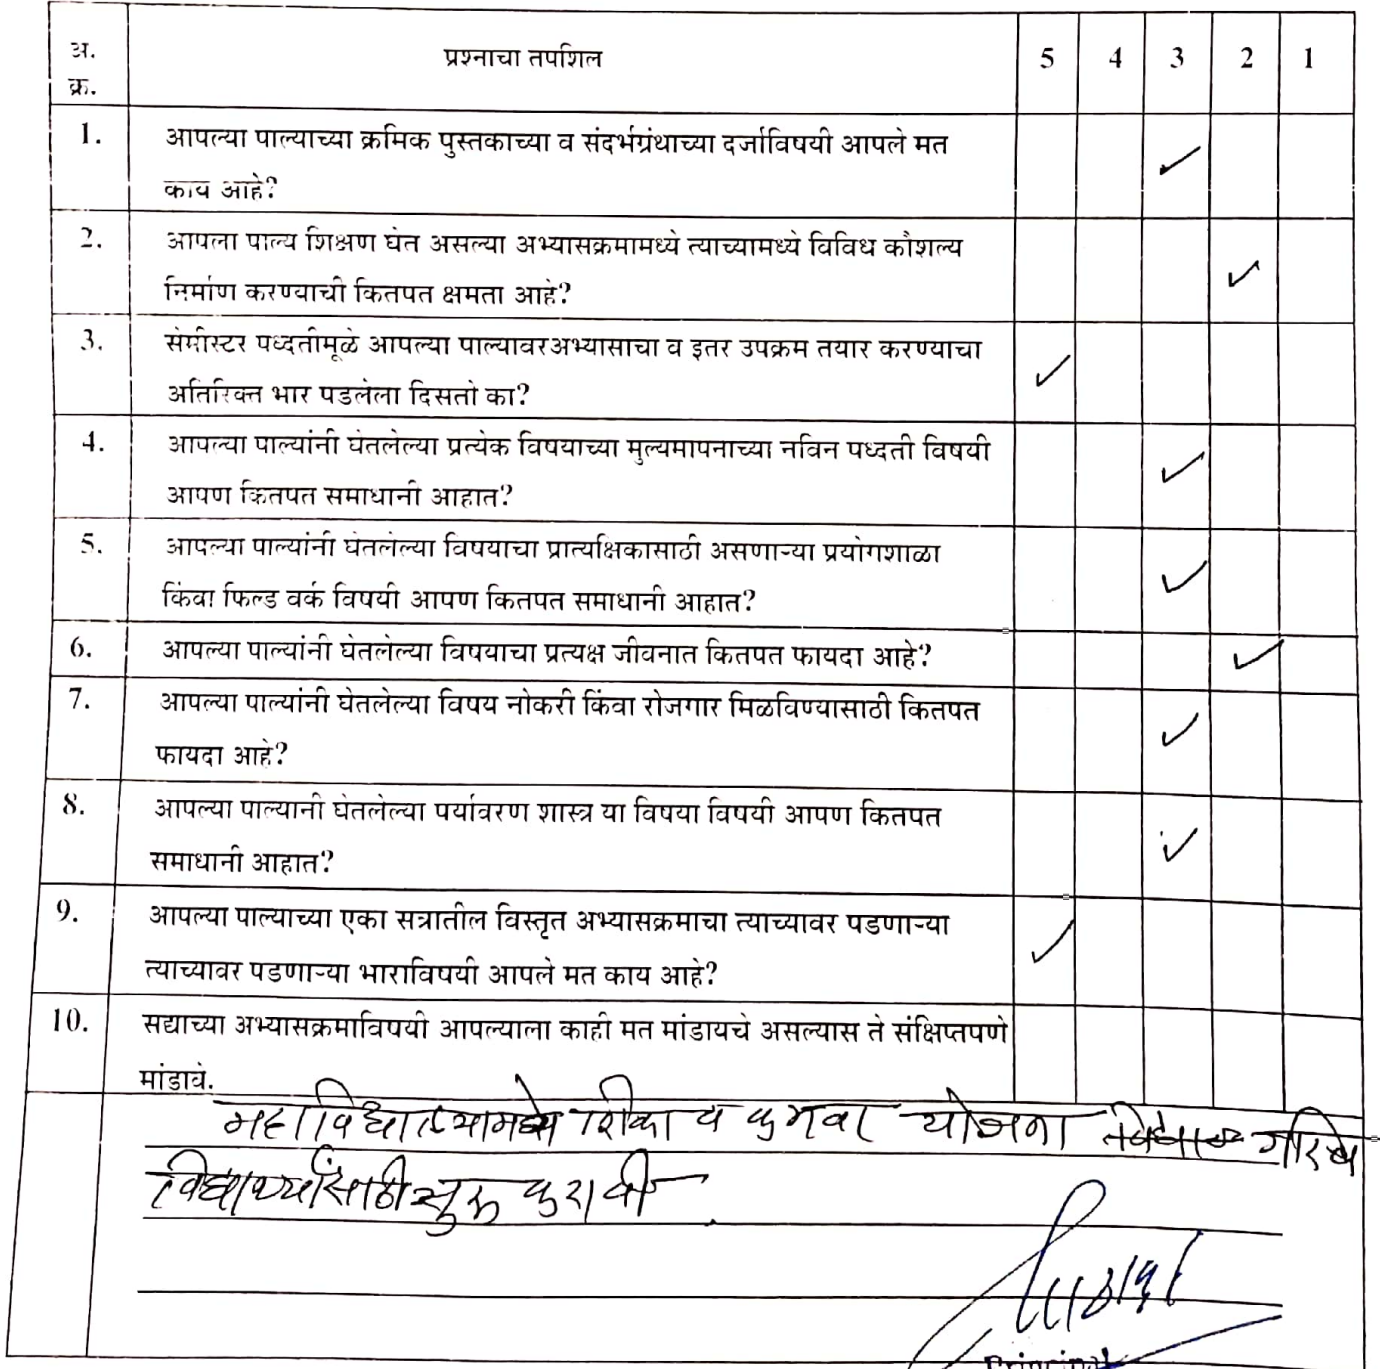 अ. क्र. प्रश्नाचा तपशिल 5 4 3 2 1
1. आपल्या पाल्याच्या क्रमिक पुस्तकाच्या व संदर्भग्रंथाच्या दर्जाविषयी आपले मत
काय आहे?
2. आपला पाल्य शिक्षण घेत असल्या अभ्यासक्रमामध्ये त्याच्यामध्ये विविध कौशल्य
निर्माण करण्याची कितपत क्षमता आहे?
3. सेमीस्टर पध्दतीमूळे आपल्या पाल्यावरअभ्यासाचा व इतर उपक्रम तयार करण्याचा
अतिरिक्त भार पडलेला दिसतो का?
4. आपल्या पाल्यांनी घेतलेल्या प्रत्येक विषयाच्या मुल्यमापनाच्या नविन पध्दती विषयी
आपण कितपत समाधानी आहात?
5. आपल्या पाल्यांनी घेतलेल्या विषयाचा प्रात्यक्षिकासाठी असणाऱ्या प्रयोगशाळा
किंवा फिल्ड वर्क विषयी आपण कितपत समाधानी आहात?
6. आपल्या पाल्यांनी घेतलेल्या विषयाचा प्रत्यक्ष जीवनात कितपत फायदा आहे?
7. आपल्या पाल्यांनी घेतलेल्या विषय नोकरी किंवा रोजगार मिळविण्यासाठी कितपत
फायदा आहे?
8. आपल्या पाल्यानी घेतलेल्या पर्यावरण शास्त्र या विषया विषयी आपण कितपत
समाधानी आहात?
9. आपल्या पाल्याच्या एका सत्रातील विस्तृत अभ्यासक्रमाचा त्याच्यावर पडणाऱ्या
त्याच्यावर पडणाऱ्या भाराविषयी आपले मत काय आहे?
10. सद्याच्या अभ्यासक्रमाविषयी आपल्याला काही मत मांडायचे असल्यास ते संक्षिप्तपणे
मांडावे.
महाविद्यालयामध्ये शिका व कमवा योजना गरिब
विद्यार्थ्यांसाठी सुरू करावी
Principal